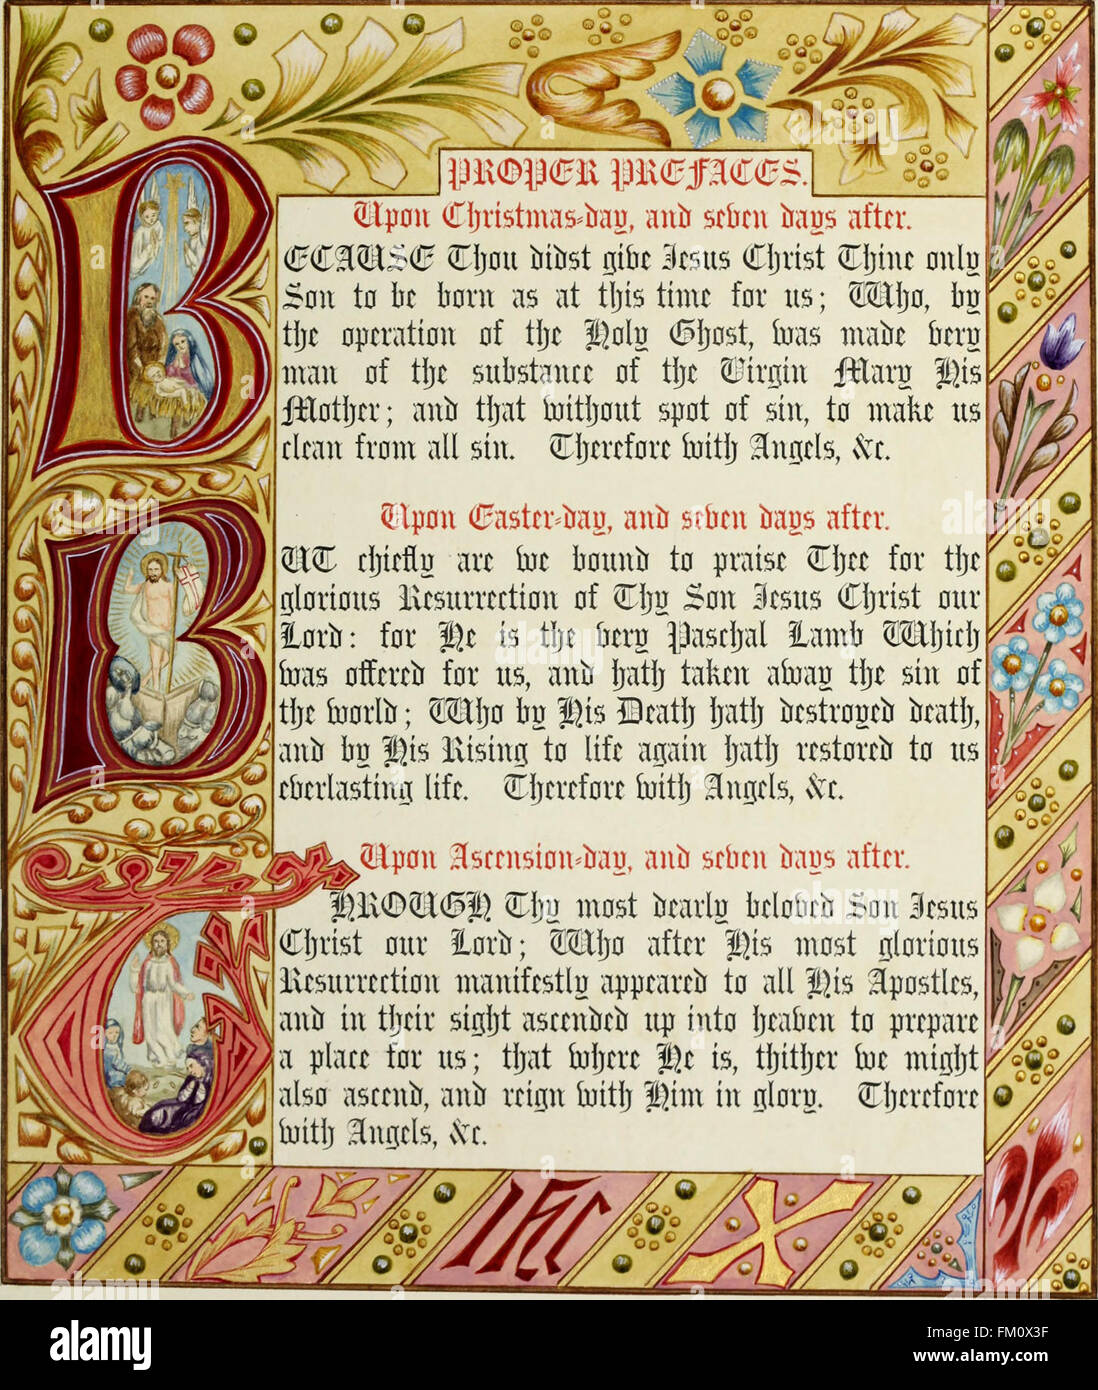 PROPER PREFACES.
Upon Christmas-day, and seven days after.
BECAUSE Thou didst give Jesus Christ Thine only
Son to be born as at this time for us; Who, by
the operation of the Holy Ghost, was made very
man of the substance of the Virgin Mary His
Mother; and that without spot of sin, to make us
clean from all sin. Therefore with Angels, &c.
Upon Easter-day, and seven days after.
BUT chiefly are we bound to praise Thee for the
glorious Resurrection of Thy Son Jesus Christ our
Lord: for He is the very Paschal Lamb Which
was offered for us, and hath taken away the sin of
the world; Who by His Death hath destroyed death,
and by His Rising to life again hath restored to us
everlasting life. Therefore with Angels, &c.
Upon Ascension-day, and seven days after.
THROUGH Thy most dearly beloved Son Jesus
Christ our Lord; Who after His most glorious
Resurrection manifestly appeared to all His Apostles,
and in their sight ascended up into heaven to prepare
a place for us; that where He is, thither we might
also ascend, and reign with Him in glory. Therefore
with Angels, &c.
IHC X
alamy
alamy
Image ID: FM0X3F
www.alamy.com